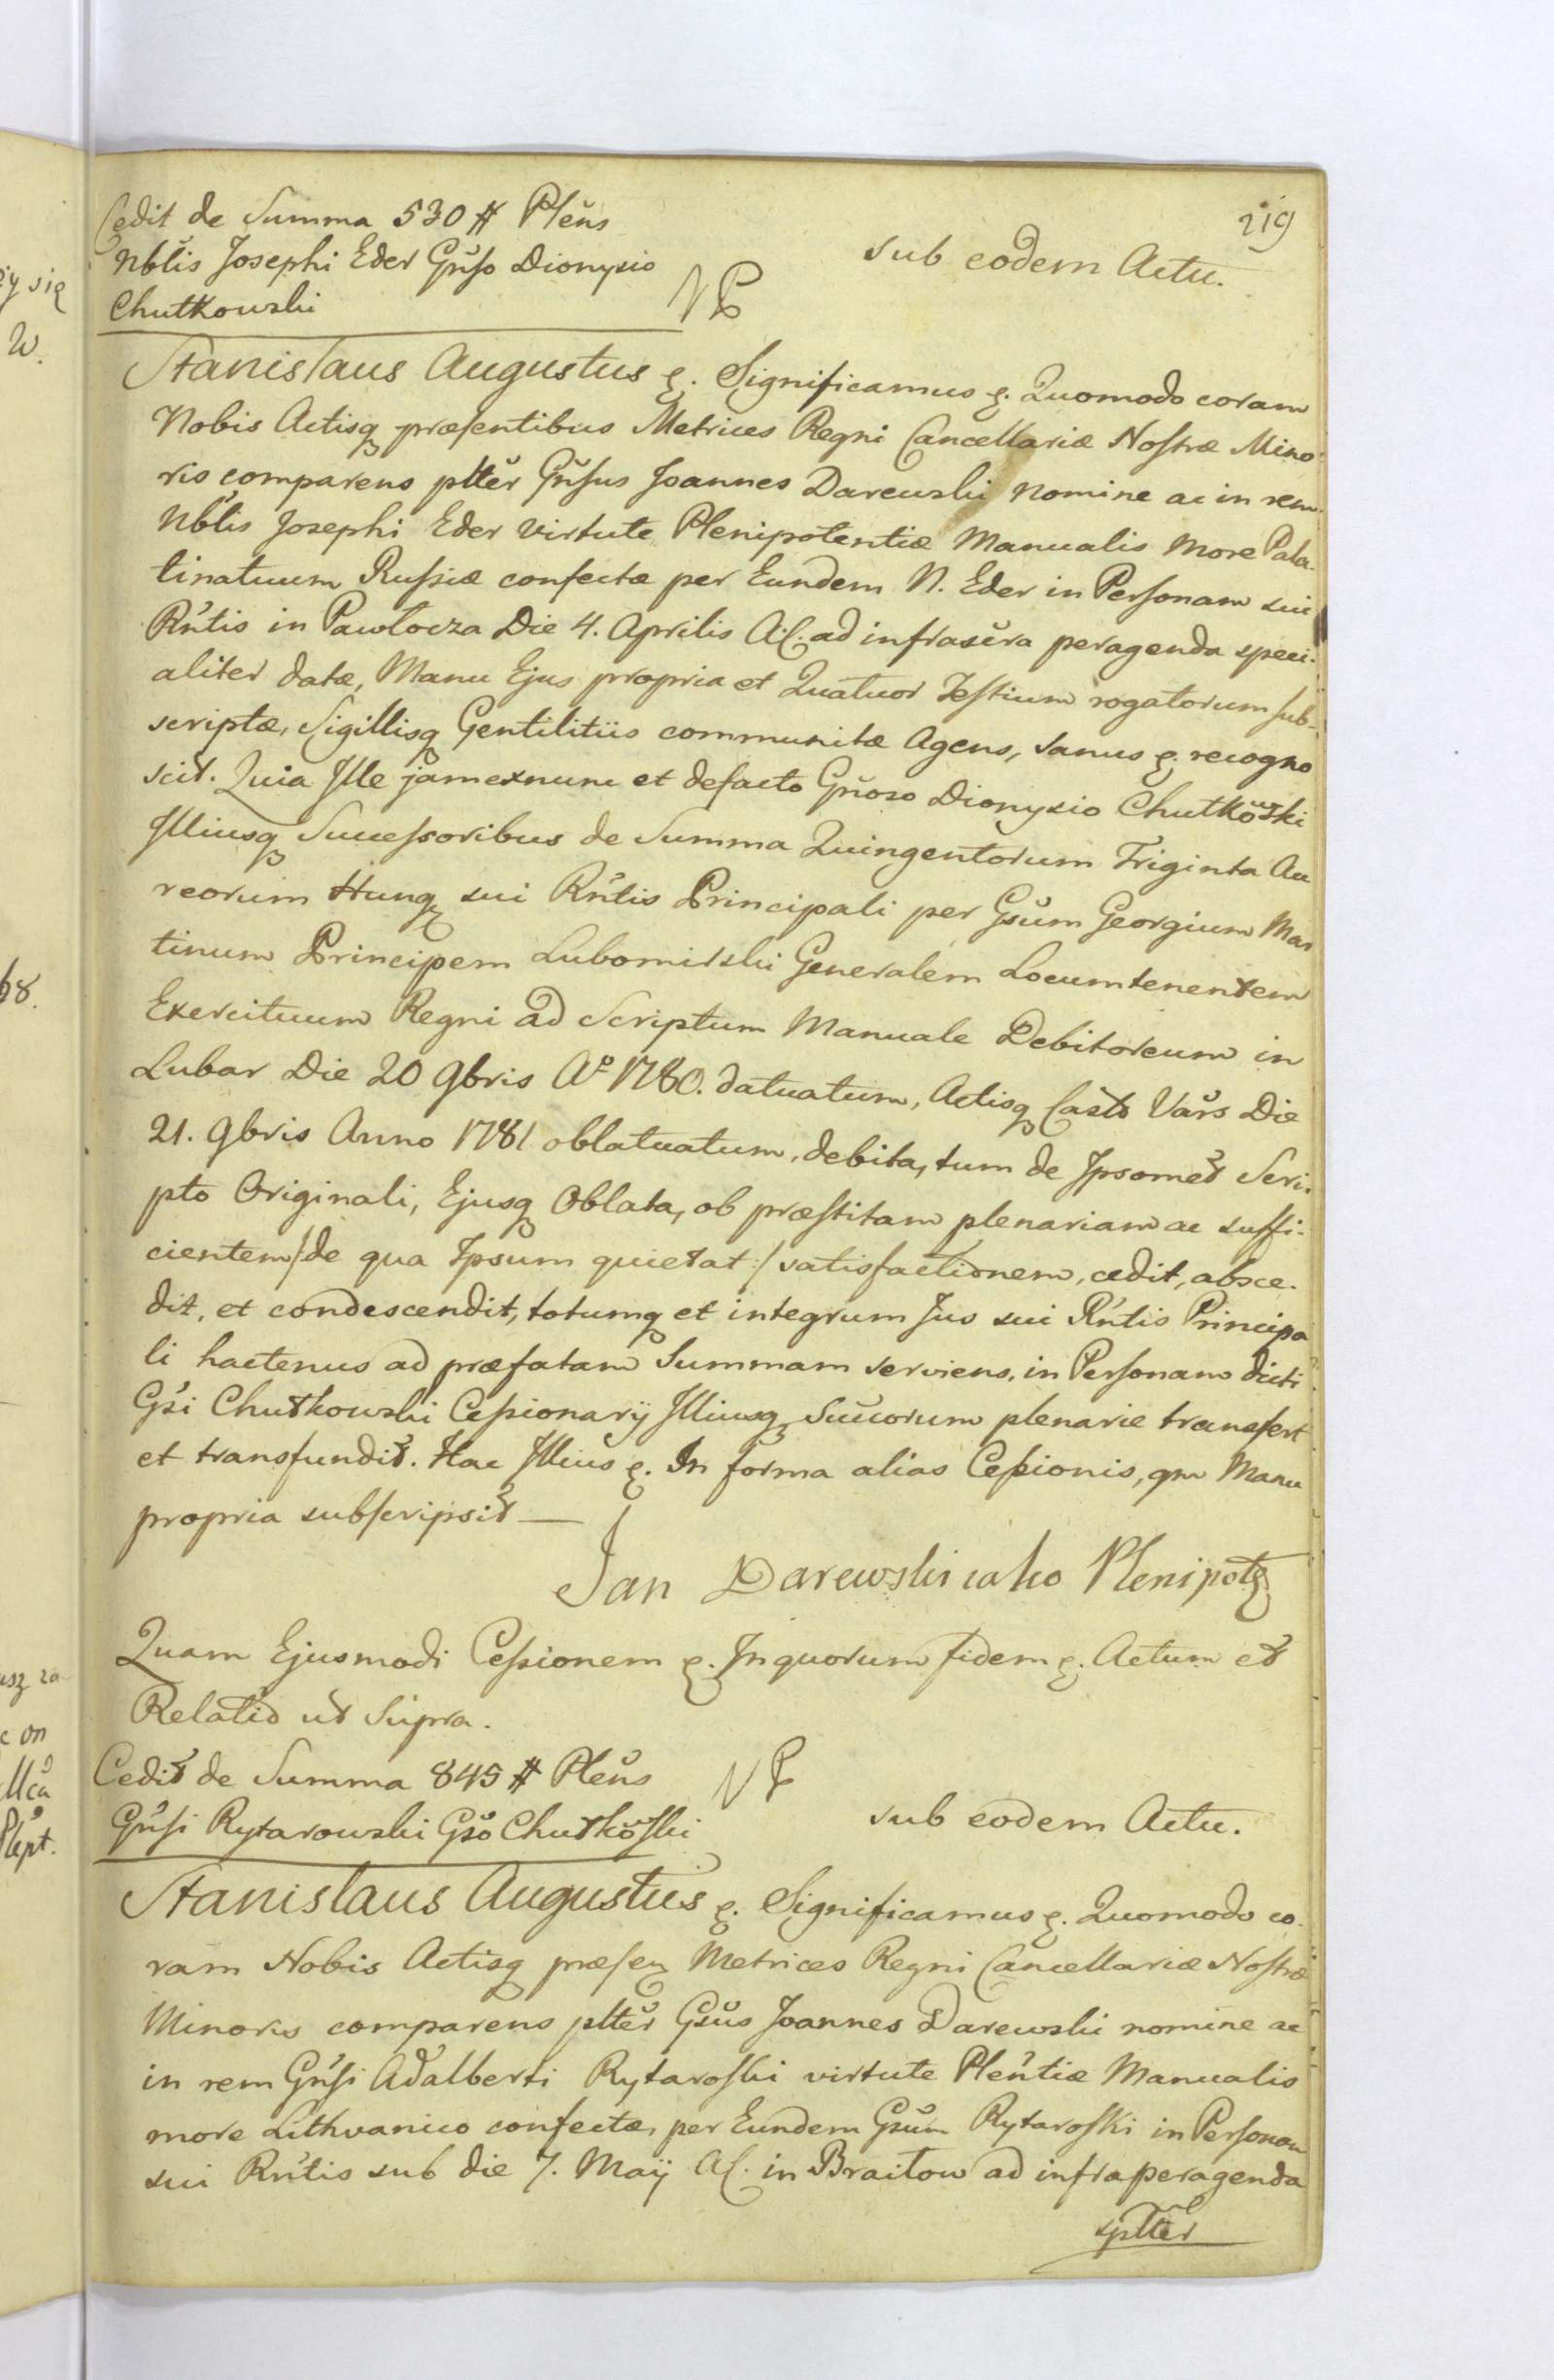 219
Cedit de Summa 530 # Plēns
Nblis Josephi Eder Gnſo Dionysio
Chutkowski
NP
sub eodem Actu.
Stanislaus Augustus &. Significamus &. Quomodo coram
Nobis Actisq præsentibus Metrices Regni Cancellariæ Nostræ Mino-
ris comparens pltěr Gnſus Joannes Darewski nomine ac in rem
Nblis Josephi Eder virtute Plenipotentiæ Manualis More Pala-
tinatuum Russiæ confectæ per Eundem N. Eder in Personam sui
Rn̄tis in Pawłocza Die 4. Aprilis A.C. ad infrasc̄ra peragenda speci-
aliter datæ, Manu Ejus propria et Quatuor Testium rogatorum sub-
scriptæ, Sigillisq Gentilitiis communitæ Agens, sanus &. recogno
scit. Quia Ille jam exnunc et defacto Gn̄oso Dionysio Chutkowski
Illiusq Successoribus de Summa Quingentorum Triginta Au
reorum Hung sui Rn̄tis Principali per Gsum Georgium Mar
tinum Principem Lubomirski Generalem Locumtenentem
Exercituum Regni ad Scriptum Manuale Debitoreum in
Lubar Die 20 9bris A° 1780. datuatum, Actisq Casto Vars Die
21. 9bris Anno 1781 oblatuatum, debita, tum de Ipsomet Scri-
pto Originali, Ejusq Oblata, ob præstitam plenariam ac suffi-
cientem /de qua Ipsum quietat:/ satisfactionem, cedit, absce-
dit, et condescendit, totumq et integrum Jus sui Rn̄tis Principa
li hactenus ad præfatam Summam serviens, in Personam dicti
Gsi Chutkowski Cessionarij Illiusq Succorum plenarie transfert
et transfundit. Hac Illius &. In forma alias Cessionis, qm Manu
propria subscripsit —
Jan Darewski iako Plenipotę
Quam Ejusmodi Cessionem &. In quorum fidem &. Actum et
Relatio ut Supra.
Cedit de Summa 845 # Plēns
Gnſi Rytarowski Gso Chutkoſki
NP
sub eodem Actu.
Stanislaus Augustus &. Significamus &. Quomodo co-
ram Nobis Actisq præsen Metrices Regni Cancellariæ Nostræ
Minoris comparens pltěr Gsus Joannes Darewski nomine ac
in rem Gnſi Adalberti Rytaroſki virtute Plen̄tiæ Manualis
more Lithvanico confectæ, per Eundem Gsum Rytaroſki in Personam
sui Rn̄tis sub die 7. Maij A.C. in Braitow ad infra peragenda
spltěr